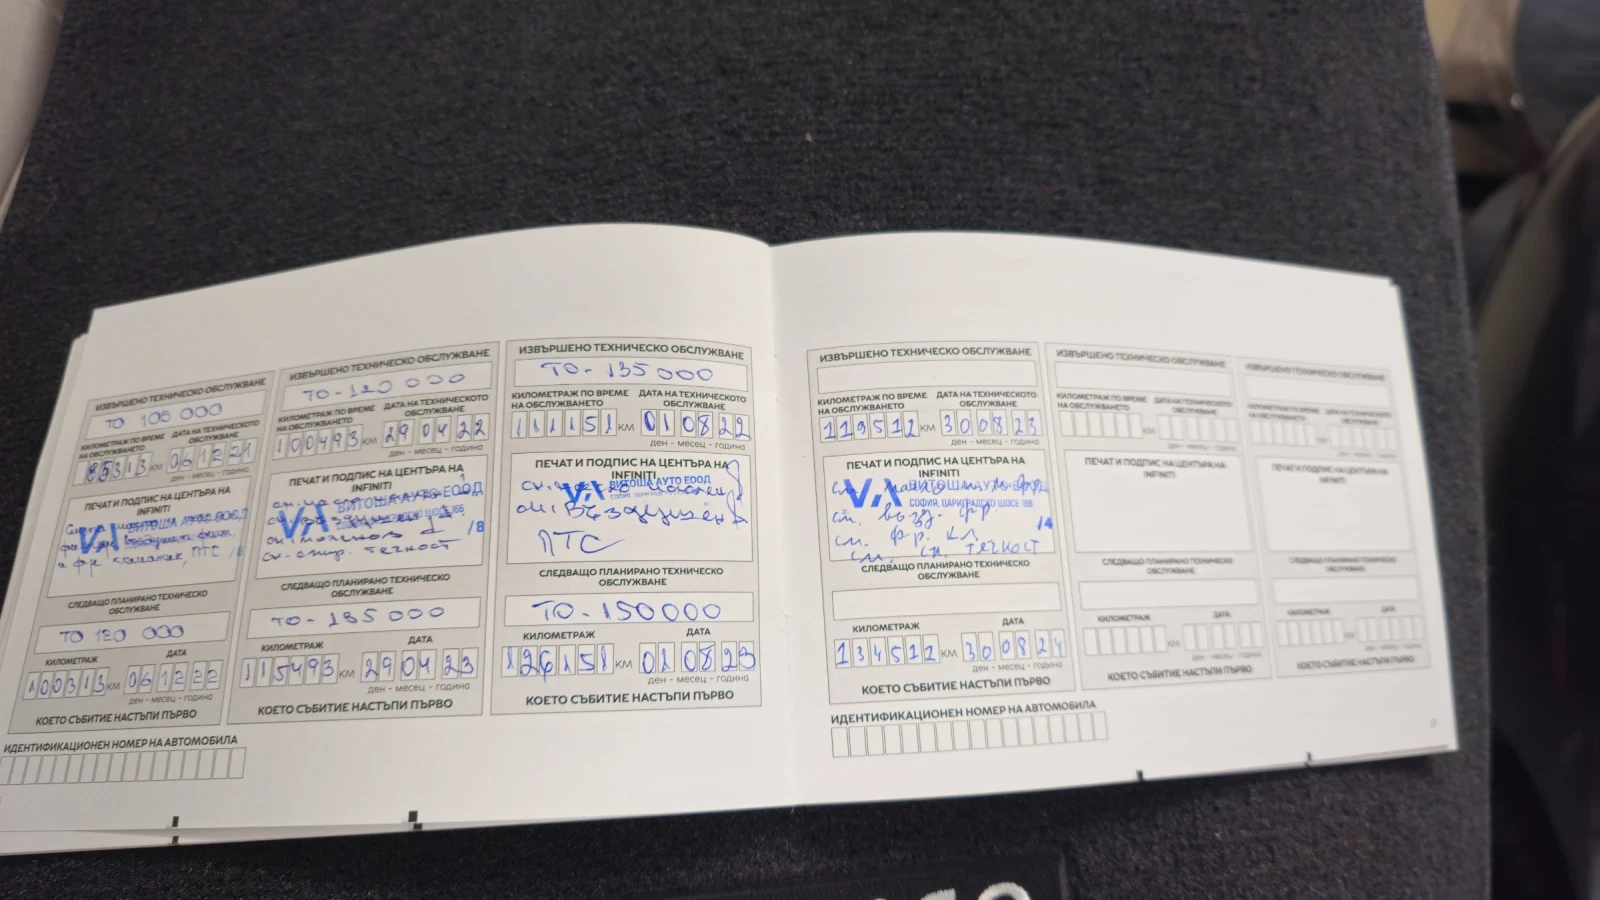 ИЗВЪРШЕНО ТЕХНИЧЕСКО ОБСЛУЖВАНЕ
ТО 105 000
КИЛОМЕТРАЖ ПО ВРЕМЕ НА ОБСЛУЖВАНЕТО
ДАТА НА ТЕХНИЧЕСКОТО ОБСЛУЖВАНЕ
85313 КМ 061221
ден - месец - година
ПЕЧАТ И ПОДПИС НА ЦЕНТЪРА НА INFINITI
VA ВИТОША АУТО ЕООД
ПТС /8
СЛЕДВАЩО ПЛАНИРАНО ТЕХНИЧЕСКО ОБСЛУЖВАНЕ
ТО 120 000
КИЛОМЕТРАЖ ДАТА
100313 КМ 061222
ден - месец - година
КОЕТО СЪБИТИЕ НАСТЪПИ ПЪРВО
ИЗВЪРШЕНО ТЕХНИЧЕСКО ОБСЛУЖВАНЕ
ТО-120 000
КИЛОМЕТРАЖ ПО ВРЕМЕ НА ОБСЛУЖВАНЕТО
ДАТА НА ТЕХНИЧЕСКОТО ОБСЛУЖВАНЕ
100493 КМ 290422
ден - месец - година
ПЕЧАТ И ПОДПИС НА ЦЕНТЪРА НА INFINITI
VA ВИТОША АУТО ЕООД
СОФИЯ, ЦАРИГРАДСКО ШОСЕ 16Б
/8
см. спир. течност
СЛЕДВАЩО ПЛАНИРАНО ТЕХНИЧЕСКО ОБСЛУЖВАНЕ
ТО-135 000
КИЛОМЕТРАЖ ДАТА
115493 КМ 290423
ден - месец - година
КОЕТО СЪБИТИЕ НАСТЪПИ ПЪРВО
ИДЕНТИФИКАЦИОНЕН НОМЕР НА АВТОМОБИЛА
ИЗВЪРШЕНО ТЕХНИЧЕСКО ОБСЛУЖВАНЕ
ТО-135 000
КИЛОМЕТРАЖ ПО ВРЕМЕ НА ОБСЛУЖВАНЕТО
ДАТА НА ТЕХНИЧЕСКОТО ОБСЛУЖВАНЕ
111151 КМ 010822
ден - месец - година
ПЕЧАТ И ПОДПИС НА ЦЕНТЪРА НА INFINITI
VA ВИТОША АУТО ЕООД
ПТС
СЛЕДВАЩО ПЛАНИРАНО ТЕХНИЧЕСКО ОБСЛУЖВАНЕ
ТО-150000
КИЛОМЕТРАЖ ДАТА
126151 КМ 010823
ден - месец - година
КОЕТО СЪБИТИЕ НАСТЪПИ ПЪРВО
ИЗВЪРШЕНО ТЕХНИЧЕСКО ОБСЛУЖВАНЕ
КИЛОМЕТРАЖ ПО ВРЕМЕ НА ОБСЛУЖВАНЕТО
ДАТА НА ТЕХНИЧЕСКОТО ОБСЛУЖВАНЕ
119512 КМ 300823
ден - месец - година
ПЕЧАТ И ПОДПИС НА ЦЕНТЪРА НА INFINITI
VA ВИТОША АУТО ЕООД
СОФИЯ, ЦАРИГРАДСКО ШОСЕ 16Б
см. възд. фр
см. фр. кл.
см. сп. течност
СЛЕДВАЩО ПЛАНИРАНО ТЕХНИЧЕСКО ОБСЛУЖВАНЕ
КИЛОМЕТРАЖ ДАТА
134512 КМ 300824
ден - месец - година
КОЕТО СЪБИТИЕ НАСТЪПИ ПЪРВО
ИДЕНТИФИКАЦИОНЕН НОМЕР НА АВТОМОБИЛА
ИЗВЪРШЕНО ТЕХНИЧЕСКО ОБСЛУЖВАНЕ
КИЛОМЕТРАЖ ПО ВРЕМЕ НА ОБСЛУЖВАНЕТО
ДАТА НА ТЕХНИЧЕСКОТО ОБСЛУЖВАНЕ
КМ
ден - месец - година
ПЕЧАТ И ПОДПИС НА ЦЕНТЪРА НА INFINITI
СЛЕДВАЩО ПЛАНИРАНО ТЕХНИЧЕСКО ОБСЛУЖВАНЕ
КИЛОМЕТРАЖ ДАТА
КМ
ден - месец - година
КОЕТО СЪБИТИЕ НАСТЪПИ ПЪРВО
ИЗВЪРШЕНО ТЕХНИЧЕСКО ОБСЛУЖВАНЕ
КИЛОМЕТРАЖ ПО ВРЕМЕ НА ОБСЛУЖВАНЕТО
ДАТА НА ТЕХНИЧЕСКОТО ОБСЛУЖВАНЕ
КМ
ден - месец - година
ПЕЧАТ И ПОДПИС НА ЦЕНТЪРА НА INFINITI
СЛЕДВАЩО ПЛАНИРАНО ТЕХНИЧЕСКО ОБСЛУЖВАНЕ
КИЛОМЕТРАЖ ДАТА
КМ
ден - месец - година
КОЕТО СЪБИТИЕ НАСТЪПИ ПЪРВО